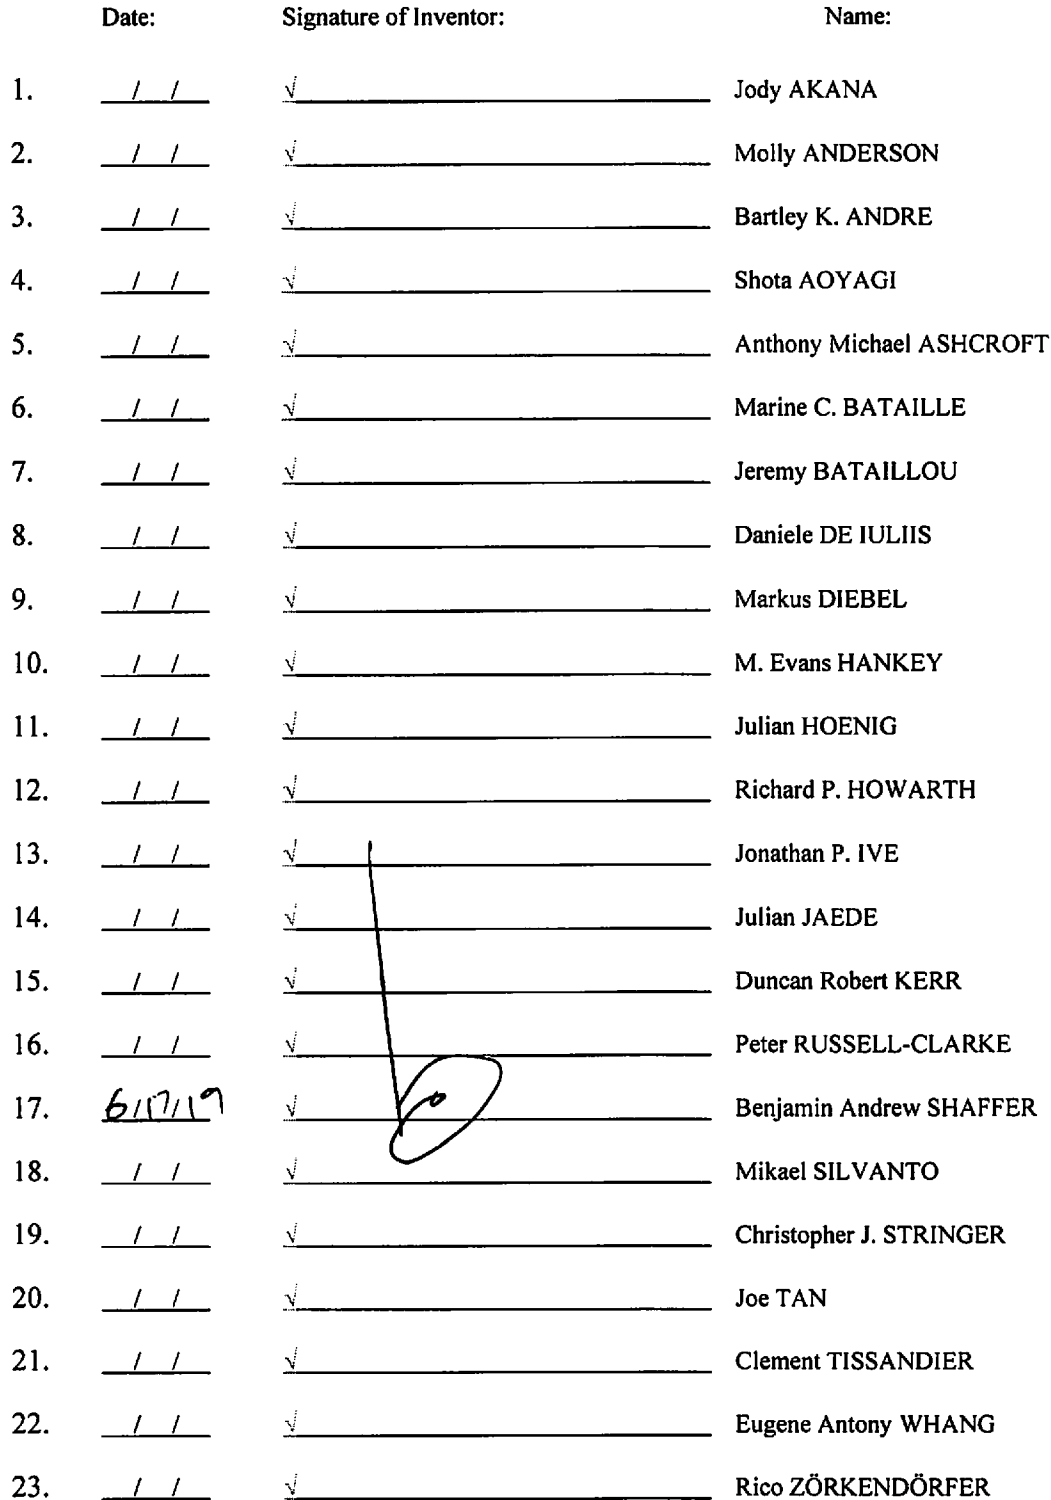 Date: Signature of Inventor: Name:
1. / / √ Jody AKANA
2. / / √ Molly ANDERSON
3. / / √ Bartley K. ANDRE
4. / / √ Shota AOYAGI
5. / / √ Anthony Michael ASHCROFT
6. / / √ Marine C. BATAILLE
7. / / √ Jeremy BATAILLOU
8. / / √ Daniele DE IULIIS
9. / / √ Markus DIEBEL
10. / / √ M. Evans HANKEY
11. / / √ Julian HOENIG
12. / / √ Richard P. HOWARTH
13. / / √ Jonathan P. IVE
14. / / √ Julian JAEDE
15. / / √ Duncan Robert KERR
16. / / √ Peter RUSSELL-CLARKE
17. 6/17/19 √ Benjamin Andrew SHAFFER
18. / / √ Mikael SILVANTO
19. / / √ Christopher J. STRINGER
20. / / √ Joe TAN
21. / / √ Clement TISSANDIER
22. / / √ Eugene Antony WHANG
23. / / √ Rico ZÖRKENDÖRFER